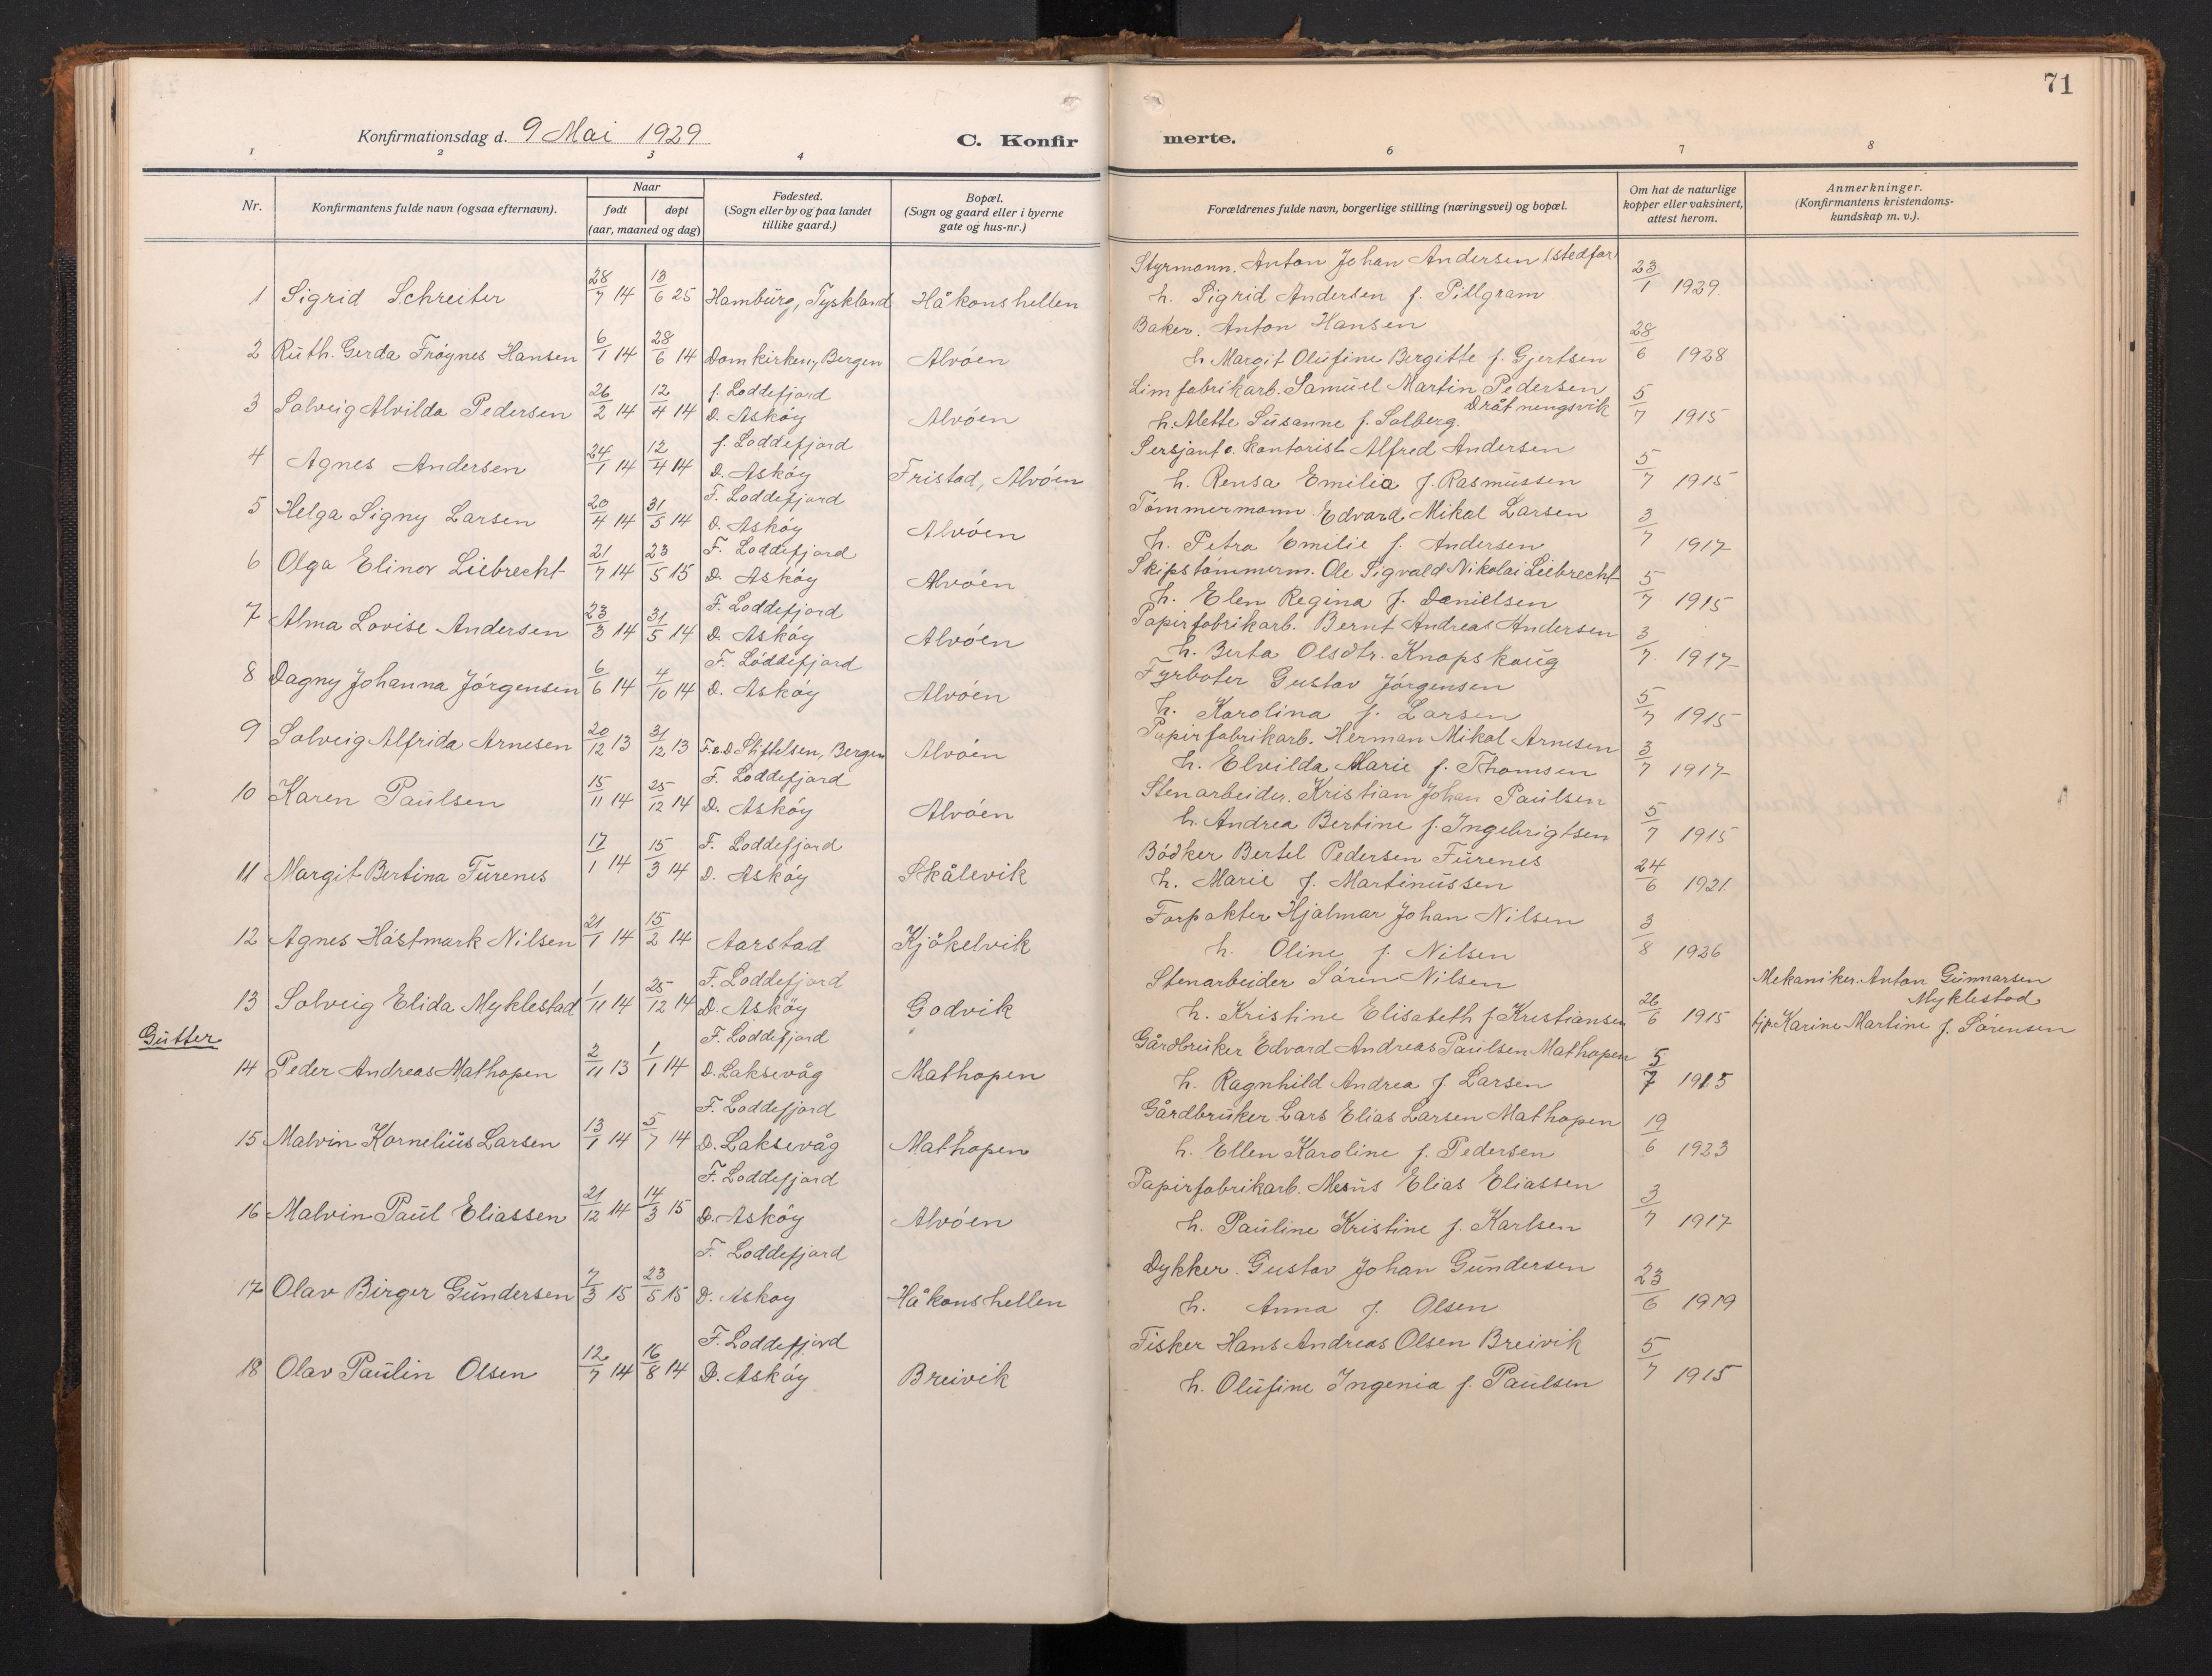 71
Konfirmationsdag d. 9 Mai 1929
C. Konfir
merte.
1 2 3 4 6 7 8
Nr.
Konfirmantens fulde navn (ogsaa efternavn).
Naar
født døpt
(aar, maaned og dag)
Fødested.
(Sogn eller by og paa landet
tillike gaard.)
Bopæl.
(Sogn og gaard eller i byerne
gate og hus-nr.)
Forældrenes fulde navn, borgerlige stilling (næringsvei) og bopæl.
Om hat de naturlige
kopper eller vaksinert,
attest herom.
Anmerkninger.
(Konfirmantens kristendoms-
kundskap m. v.).
Styrmann. Anton Johan Andersen (stedfar)
1 Sigrid Schreiter 28/7 14 13/6 25 Hamburg, Tyskland Håkonshellen h. Sigrid Andersen f. Pillgram 23/1 1929
Baker. Anton Hansen
2 Ruth. Gerda Frøynes Hansen 6/1 14 28/6 14 Domkirken, Bergen Alvøen h. Margit Olufine Bergitte f. Gjertsen 28/6 1928
f. Loddefjord Limfabrikarb. Samuel Martin Pedersen
Dråtnengsvik
3 Solveig Alvilda Pedersen 26/2 14 12/4 14 D. Askøy Alvøen h. Alette Susanne f. Solberg. 5/7 1915
f. Loddefjord Sersjant o. kontorist Alfred Andersen
4 Agnes Andersen 24/1 14 12/4 14 D. Askøy Fristad, Alvøen h. Rensa Emilie f. Rasmussen 5/7 1915
F. Loddefjord Tømmermann Edvard Mikal Larsen
5 Helga Signy Larsen 20/4 14 31/5 14 D. Askøy Alvøen h. Petra Emilie f. Andersen 3/7 1917
F. Loddefjord Skipstømmerm. Ole Sigvald Nikolai Liebrecht
6 Olga Elinor Liebrecht 21/7 14 23/5 15 D. Askøy Alvøen h. Elen Regina f. Danielsen 5/7 1915
F. Loddefjord Papirfabrikarb. Bernt Andreas Andersen
7 Alma Lovise Andersen 23/3 14 31/5 14 D. Askøy Alvøen h. Berta Olsdtr. Knapskaug 3/7 1917
F. Loddefjord Fyrbøter Gustav Jørgensen
8 Dagny Johanna Jørgensen 6/6 14 4/10 14 D. Askøy Alvøen h. Karolina f. Larsen 5/7 1915
Papirfabrikarb. Herman Mikal Arnesen
9 Solveig Alfrida Arnesen 20/12 13 31/12 13 F.o.D Stiftelsen, Bergen Alvøen h. Elvilda Marie f. Thomsen 3/7 1917
F. Loddefjord Stenarbeider. Kristian Johan Paulsen
10 Karen Paulsen 15/11 14 25/12 14 D. Askøy Alvøen h. Andrea Bertine f. Ingebrigtsen 5/7 1915
F. Loddefjord Bødker Bertel Pedersen Furenes
11 Margit Bertina Furenes 17/1 14 15/3 14 D. Askøy Skålevik h. Marie f. Martinussen 24/6 1921
Forpakter Hjalmar Johan Nilsen
12 Agnes Høstmark Nilsen 21/1 14 15/2 14 Aarstad Kjøkelvik h. Oline f. Nilsen 3/8 1926
F. Loddefjord Stenarbeider Søren Nilsen Mekaniker. Anton Gunnarsen
Myklestad
13 Solveig Elida Myklestad 1/11 14 25/12 14 D. Askøy Godvik h. Kristine Elisabeth f. Kristiansen 26/6 1915 tjp. Karine Martine f. Sørensen
Gutter
F. Loddefjord Gårdbruker Edvard Andreas Paulsen Mathopen
14 Peder Andreas Mathopen 2/11 13 1/1 14 D. Laksevåg Mathopen h. Ragnhild Andrea f. Larsen 5/7 1915
F. Loddefjord Gårdbruker Lars Elias Larsen Mathopen
15 Malvin Kornelius Larsen 13/1 14 5/7 14 D. Laksevåg Mathopen h. Ellen Karoline f. Pedersen 19/6 1923
F. Loddefjord Papirfabrikarb. Mesus Elias Eliassen
16 Malvin Paul Eliassen 21/12 14 14/3 15 D. Askøy Alvøen h. Pauline Kristine f. Karlsen 3/7 1917
F. Loddefjord Dykker. Gustav Johan Gundersen
17 Olav Birger Gundersen 7/3 15 23/5 15 D. Askøy Håkonshellen h. Anna f. Olsen 23/6 1919
F. Loddefjord Fisker Hans Andreas Olsen Breivik
18 Olav Paulin Olsen 12/7 14 16/8 14 D. Askøy Breivik h. Olufine Ingenia f. Paulsen 5/7 1915